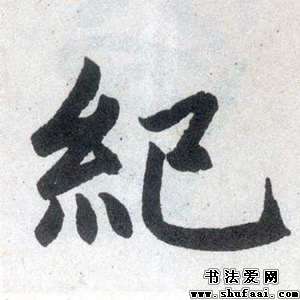 紀
书法爱网
www.shufaai.com